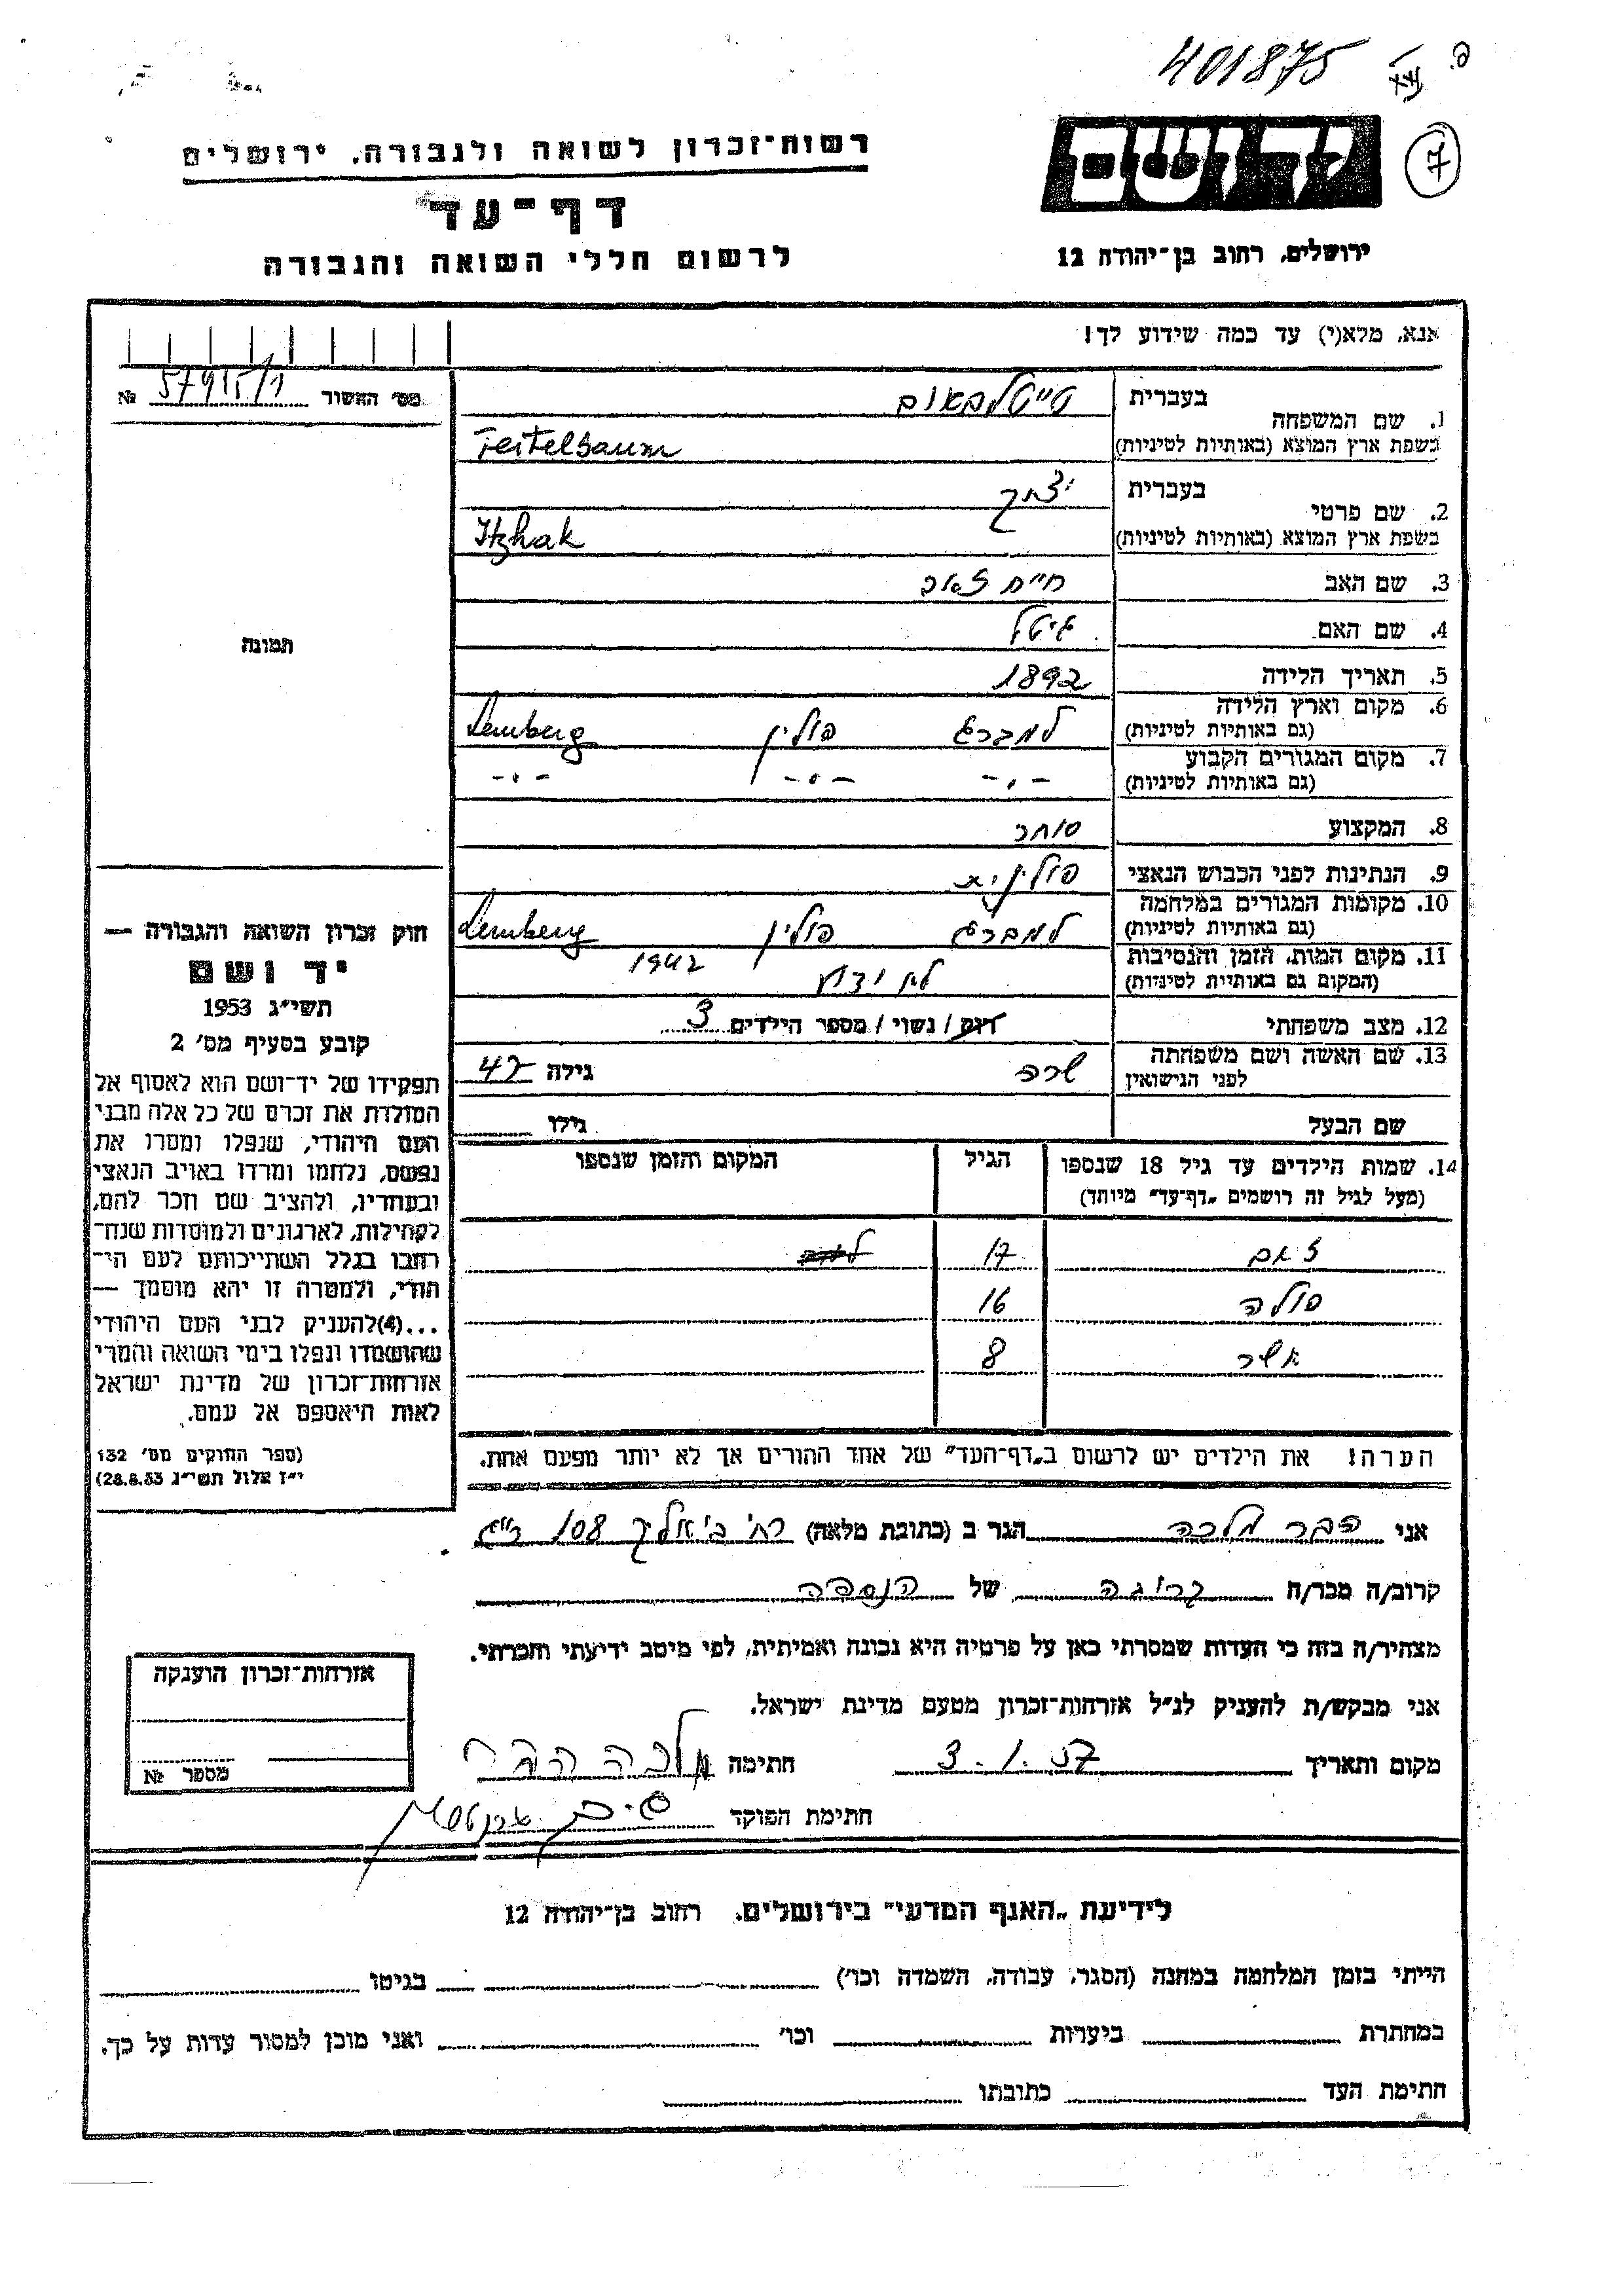 401875
7
יד ושם
רשות־זכרון לשואה ולגבורה, ירושלים
דף־עד
לרשום חללי השואה והגבורה
ירושלים, רחוב בן־יהודה 12
אנא, מלא(י) עד כמה שידוע לך!
מס' האשור № 57915/1
1. שם המשפחה בעברית טייטלבאום
בשפת ארץ המוצא (באותיות לטיניות) Teitelbaum
2. שם פרטי בעברית יצחק
בשפת ארץ המוצא (באותיות לטיניות) Itzhak
3. שם האב חיים זאב
4. שם האם גיטל
5. תאריך הלידה 1892
6. מקום וארץ הלידה (גם באותיות לטיניות) למברג פולין Lemberg
7. מקום המגורים הקבוע (גם באותיות לטיניות) -"- -"- -"-
8. המקצוע סוחר
9. הנתינות לפני הכבוש הנאצי פולנית
10. מקומות המגורים במלחמה (גם באותיות לטיניות) למברג פולין Lemberg
11. מקום המות, הזמן והנסיבות (המקום גם באותיות לטיניות) לא ידוע 1942
12. מצב משפחתי רווק / נשוי / מספר הילדים 3
13. שם האשה ושם משפחתה לפני הנישואין שרה גילה 42
שם הבעל גילו
14. שמות הילדים עד גיל 18 שנספו הגיל המקום והזמן שנספו
(מעל לגיל זה רושמים "דף־עד" מיוחד)
זאב 17
פולה 16
אשר 8
הערה! את הילדים יש לרשום ב"דף־העד" של אחד ההורים אך לא יותר מפעם אחת.
תמונה
חוק זכרון השואה והגבורה —
יד ושם
תשי"ג 1953
קובע בסעיף מס' 2
תפקידו של יד־ושם הוא לאסוף אל
המולדת את זכרם של כל אלה מבני
העם היהודי, שנפלו ומסרו את
נפשם, נלחמו ומרדו באויב הנאצי
ובעוזריו, ולהציב שם וזכר להם,
לקהילות, לארגונים ולמוסדות שנח־
רבו בגלל השתייכותם לעם הי־
הודי, ולמטרה זו יהא מוסמך —
...(4) להעניק לבני העם היהודי
שהושמדו ונפלו בימי השואה והמרי
אזרחות־זכרון של מדינת ישראל
לאות היאספם אל עמם.
(ספר החוקים מס' 132
י"ז אלול תשי"ג 28.8.53)
אני הבר מלכה הגר ב (כתובת מלאה) רח' ביאליק 108 ר"ג
קרוב/ה מכר/ה קרובה של הנספה
מצהיר/ה בזה כי העדות שמסרתי כאן על פרטיה היא נכונה ואמיתית, לפי מיטב ידיעתי והכרתי.
אני מבקש/ת להעניק לנ"ל אזרחות־זכרון מטעם מדינת ישראל.
מקום ותאריך 3.1.57 חתימה מלכה הבר
חתימת הפוקד
אזרחות־זכרון הוענקה
מספר №
לידיעת "האגף המדעי" בירושלים, רחוב בן־יהודה 12
הייתי בזמן המלחמה במחנה (הסגר, עבודה, השמדה וכו') בגיטו
במחתרת ביערות וכו' ואני מוכן למסור עדות על כך.
חתימת העד כתובתו